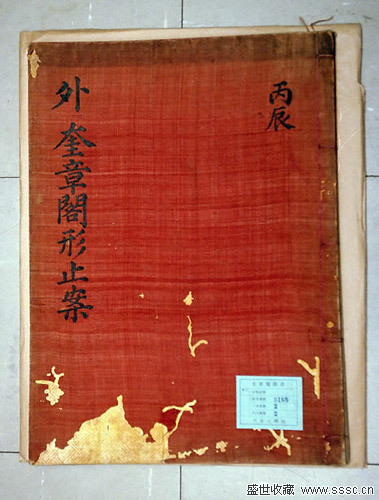 丙辰
外奎章閣形止案
盛世收藏 www.sssc.cn